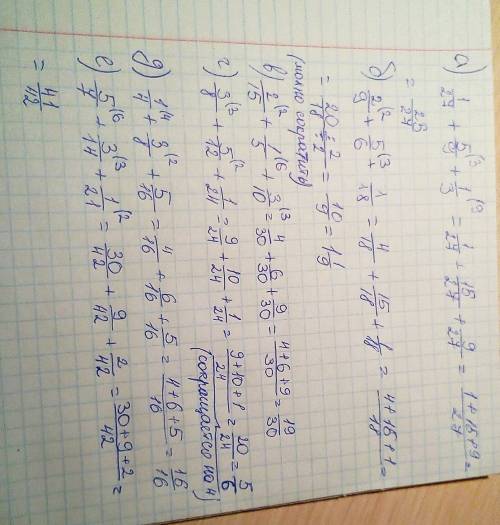 а) 1/27 + 5/9 (3 + 1/3 (9 = 1/27 + 15/27 + 9/27 = 1+15+9/27 =
= 25/27
б) 2/9 (2 + 5/6 (3 + 1/18 = 4/18 + 15/18 + 1/18 = 4+15+1/18 =
= 20:2/18:2 = 10/9 = 1 1/9
(можно сократить)
в) 2/15 (2 + 1/5 (6 + 3/10 (3 = 4/30 + 6/30 + 9/30 = 4+6+9/30 = 19/30
г) 3/8 (3 + 5/12 (2 + 1/24 = 9/24 + 10/24 + 1/24 = 9+10+1/24 = 20/24 = 5/6
(сокращается на 4)
д) 1/4 (4 + 3/8 (2 + 5/16 = 4/16 + 6/16 + 5/16 = 4+6+5/16 = 15/16
е) 5/7 (6 + 3/14 (3 + 1/21 (2 = 30/42 + 9/42 + 2/42 = 30+9+2/42 =
= 41/42